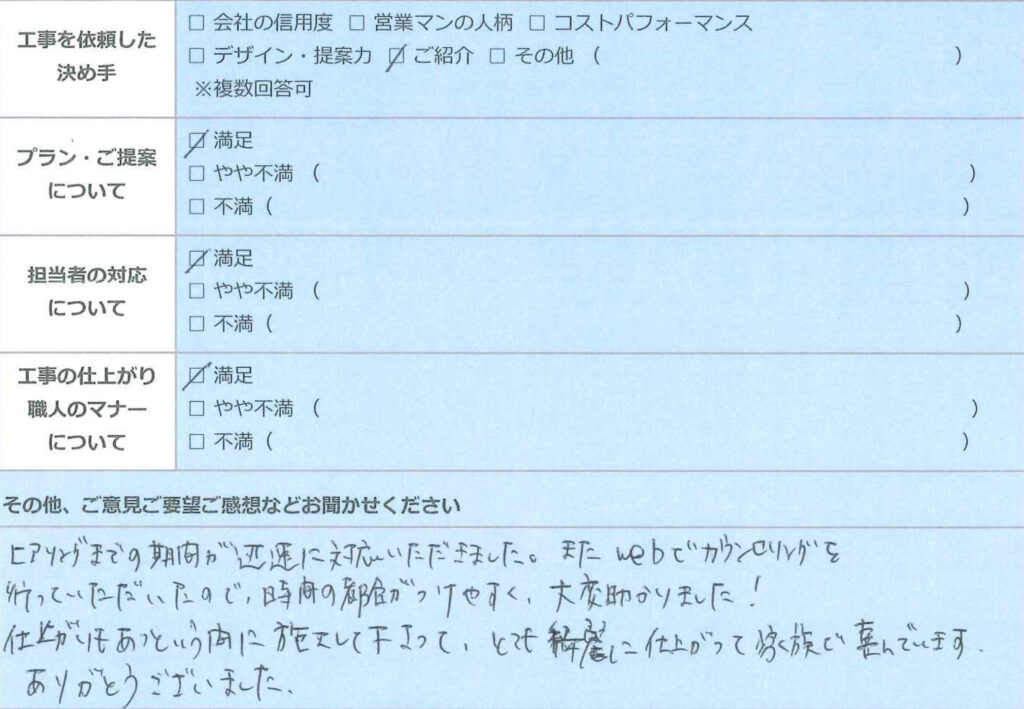 工事を依頼した
決め手
□ 会社の信用度 □ 営業マンの人柄 □ コストパフォーマンス
□ デザイン・提案力 ☑ ご紹介 □ その他 ( )
※複数回答可
プラン・ご提案
について
☑ 満足
□ やや不満 ( )
□ 不満 ( )
担当者の対応
について
☑ 満足
□ やや不満 ( )
□ 不満 ( )
工事の仕上がり
職人のマナー
について
☑ 満足
□ やや不満 ( )
□ 不満 ( )
その他、ご意見ご要望ご感想などお聞かせください
ヒアリングまでの期間が迅速に対応いただきました。また webでカウンセリングを
行っていただいたので、時間の都合がつけやすく、大変助かりました！
仕上がりもあっという間に施工して下さって、とても綺麗に仕上がって家族で喜んでいます.
ありがとうございました.